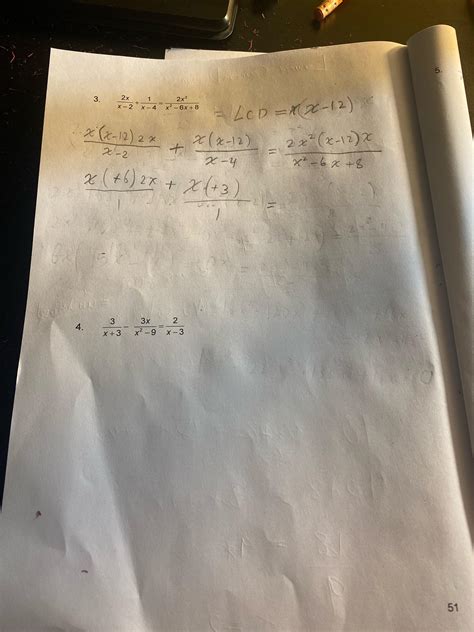 5.
3. 2x/x−2 + 1/x−4 = 2x²/x²−6x+8 = LCD = x(x-12)
x(x-12)2x/x-2 + x(x-12)/x-4 = 2x²(x-12)x/x²-6x+8
x(+6)2x/1 + x(+3)/1 =
4. 3/x+3 − 3x/x²−9 = 2/x−3
51